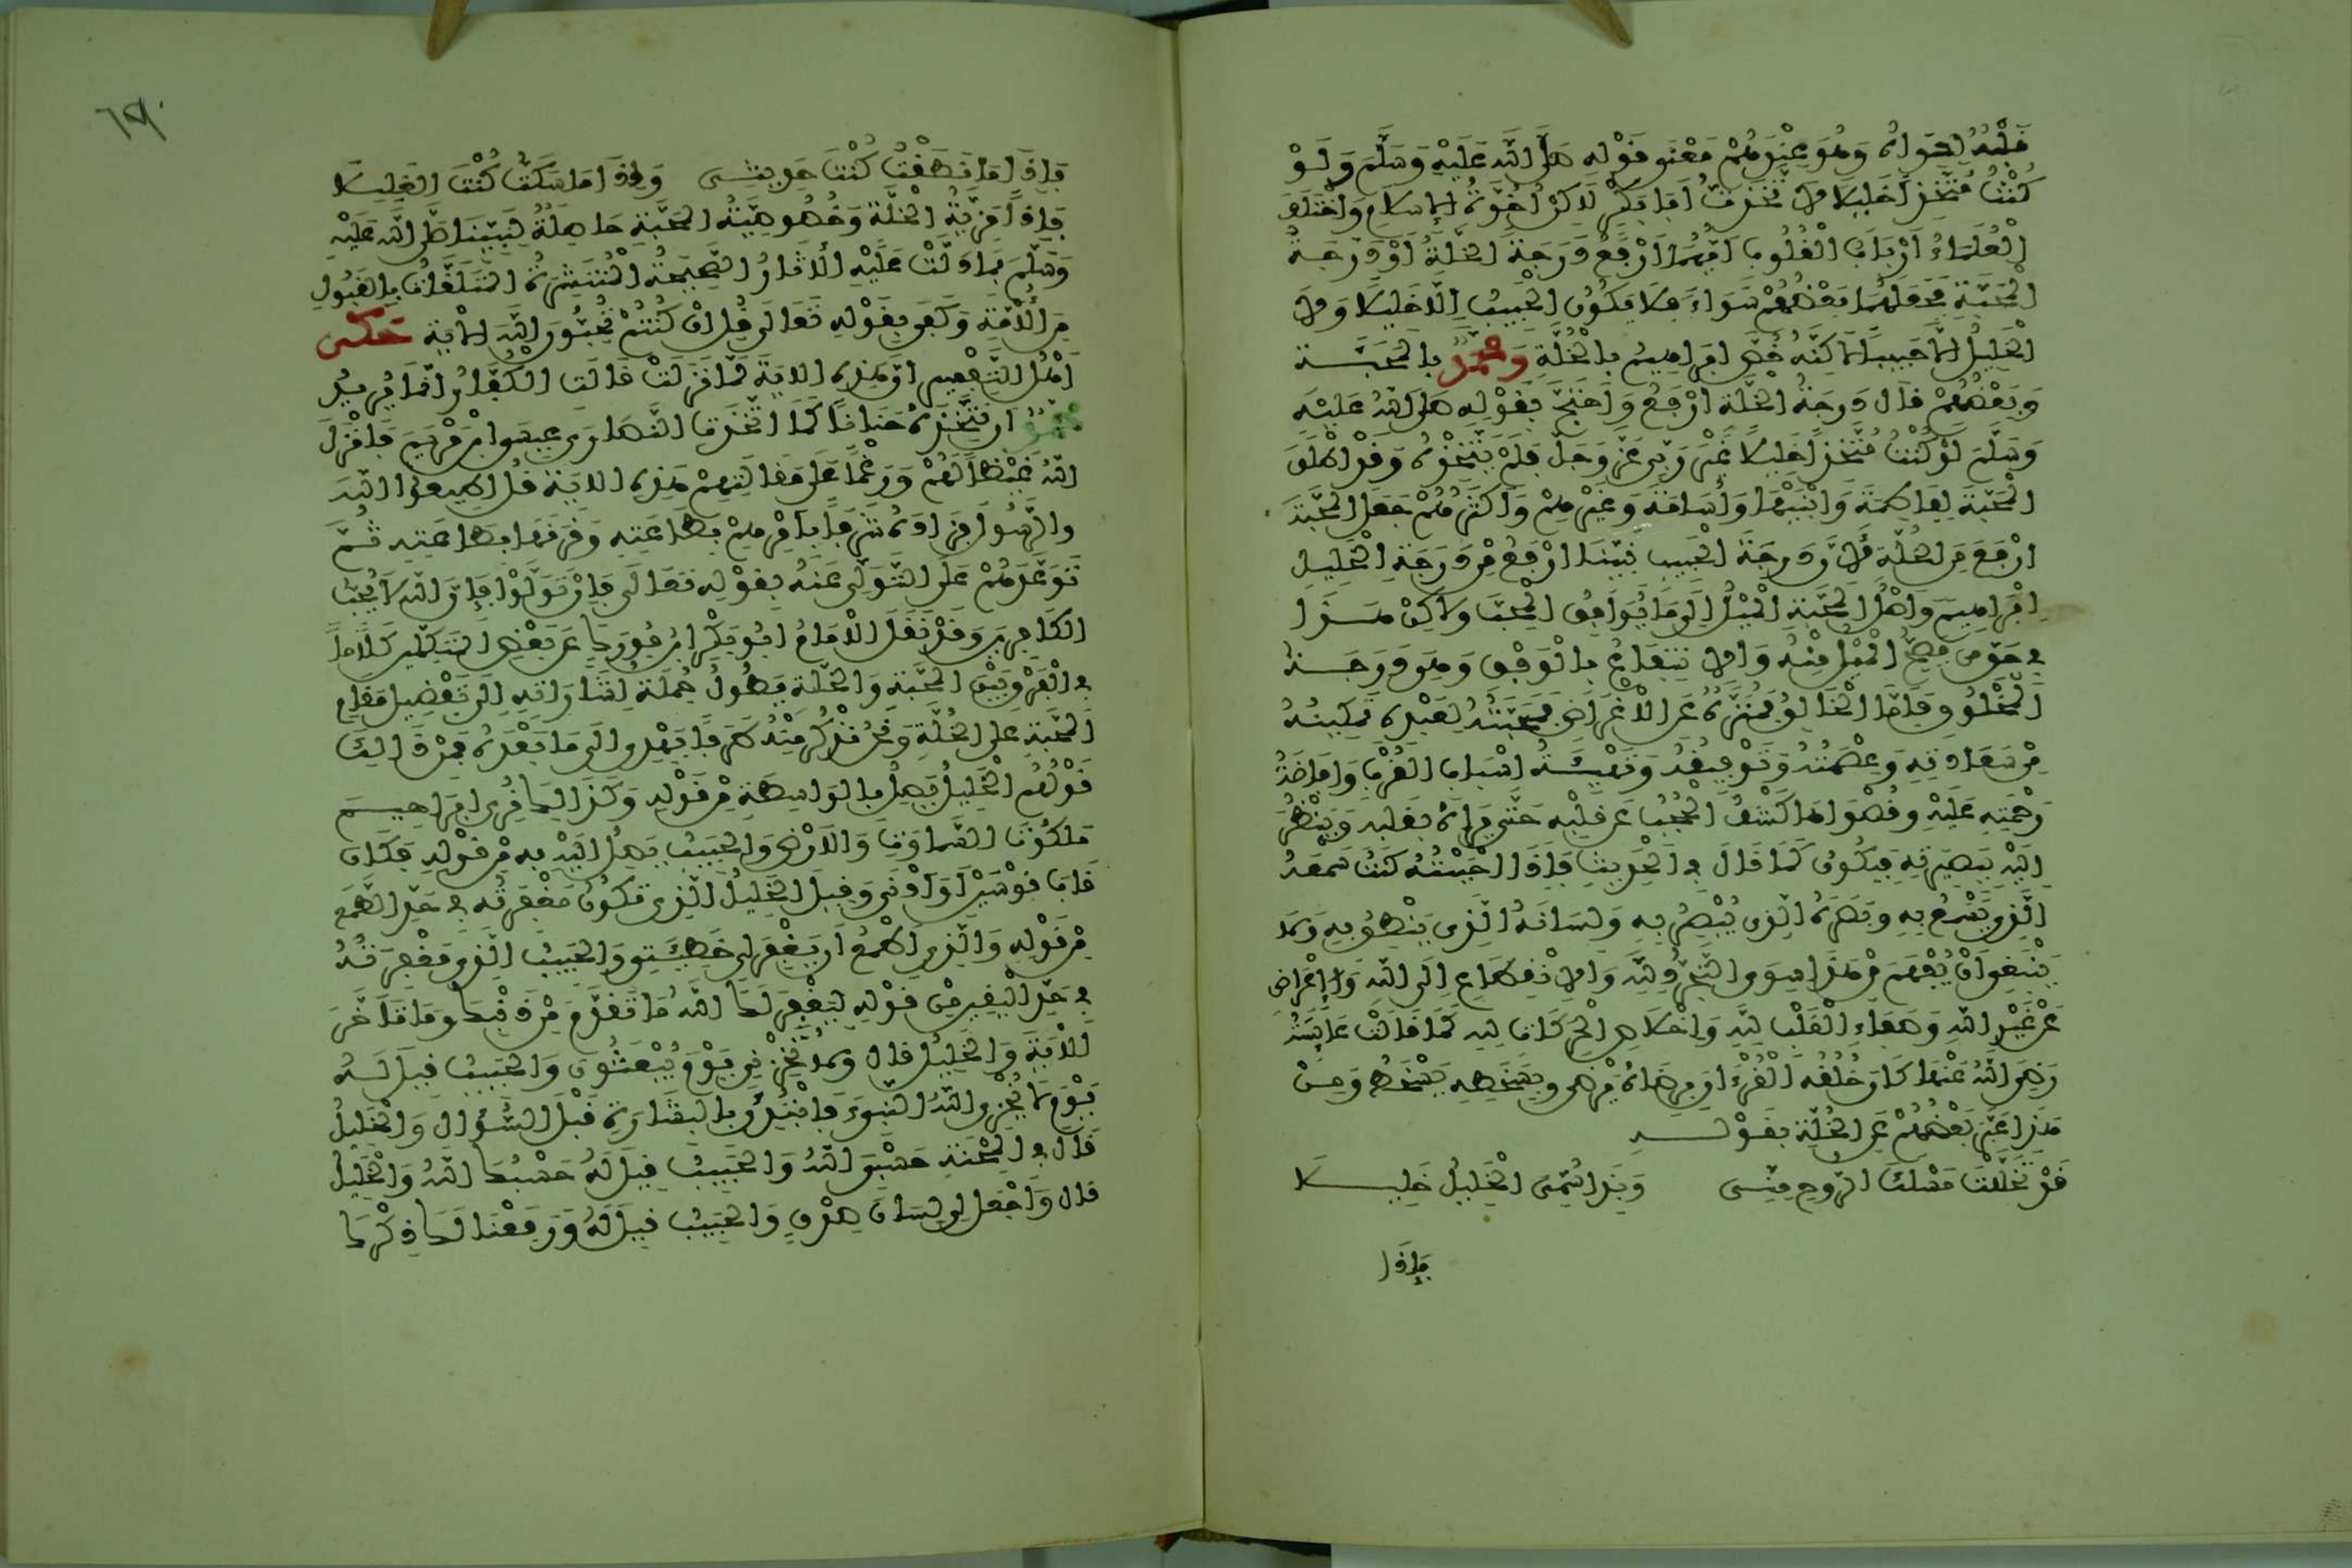 قلبه لسواه وهو عندهم معنى قوله صلى الله عليه وسلم ولو
كنت متخذا خليلا لاتخذت أبا بكر لاكن أخوة الإسلام واختلف
العلماء أرباب القلوب أيهما أرفع درجة الخلة أو درجة
المحبة فجعلهما بعضهم سواء فلا يكون الحبيب إلا خليلا ولا
الخليل إلا حبيبا لاكنه خص إبراهيم بالخلة ومحمد بالمحبة
وبعضهم قال درجة الخلة أرفع واحتج بقوله صلى الله عليه
وسلم لو كنت متخذا خليلا غير ربي عز وجل فلم يتخذه وقد أطلق
المحبة لفاطمة وابنيها وأسامة وغيرهم وأكثرهم جعل المحبة
أرفع من الخلة لأن درجة الحبيب نبينا أرفع من درجة الخليل
إبراهيم وأصل المحبة الميل إلى ما يوافق المحب ولاكن هذا
في حق من يصح الميل منه والانتفاع بالوفق وهي درجة
المخلوق فأما الخالق فمنزه عن الأغراض فمحبته لعبده تمكينه
من سعادته وعصمته وتوفيقه وتهيئة أسباب القرب وإفاضة
رحمته عليه وقصواها كشف الحجب عن قلبه حتى يراه بقلبه وينظر
إليه ببصيرته فيكون كما قال في الحديث فإذا أحببته كنت سمعه
الذي يسمع به وبصره الذي يبصر به ولسانه الذي ينطق به ولا
ينبغي أن يفهم من هذا سوى التجرد لله والانقطاع إلى الله والإعراض
عن غير الله وصفاء القلب لله وإخلاص الحركات لله كما قالت عائشة
رضي الله عنها كان خلقه القرءان برضاه يرضى وبسخطه يسخط ومن
هذا عبر بعضهم عن الخلة بقوله
قد تخللت مسلك الروح مني وبذا سمي الخليل خليلا
فإذا
فإذا ما نطقت كنت حديثي وإذا ما سكت كنت الغليلا
فإذا مزية الخلة وخصوصية المحبة حاصلة لنبينا صلى الله عليه
وسلم بما دلت عليه الآثار الصحيحة المنتشرة المتلقات بالقبول
من الأمة وكفى بقوله تعالى قل إن كنتم تحبون الله الآية حكى
أهل التفسير أن هذه الآية لما نزلت قالت الكفار إنما يريد
محمد أن نتخذه حنانا كما اتخذت النصارى عيسى بن مريم فأنزل
الله غيظا لهم ورغما على مقالتهم هذه الآية قل أطيعوا الله
والرسول فزاده شرفا بأمرهم بطاعته وقرنها بطاعته ثم
توعدهم على التولي عنه بقوله تعالى فإن تولوا فإن الله لا يحب
الكافرين وقد نقل الإمام أبو بكر بن فورك عن بعض المتكلمين كلاما
في الفرق بين المحبة والخلة يطول جملة إشاراته إلى تفضيل مقام
المحبة على الخلة ونحن نذكر منه طرفا يهدي إلى ما بعده فمن ذلك
قولهم الخليل يصل بالواسطة من قوله وكذلك نري إبراهيم
ملكوت السماوات والأرض والحبيب يصل إليه به من قوله فكان
قاب قوسين أو أدنى وقيل الخليل الذي تكون مغفرته في حد الطمع
من قوله والذي أطمع أن يغفر لي خطيئتي والحبيب الذي مغفرته
في حد اليقين من قوله ليغفر لك الله ما تقدم من ذنبك وما تأخر
الآية والخليل قال ولا تخزني يوم يبعثون والحبيب قيل له
يوم لا يخزي الله النبيء فابتدئ بالبشارة قبل السؤال والخليل
قال في المحنة حسبي الله والحبيب قيل له حسبك الله والخليل
قال واجعل لي لسان صدق والحبيب قيل له ورفعنا لك ذكرك